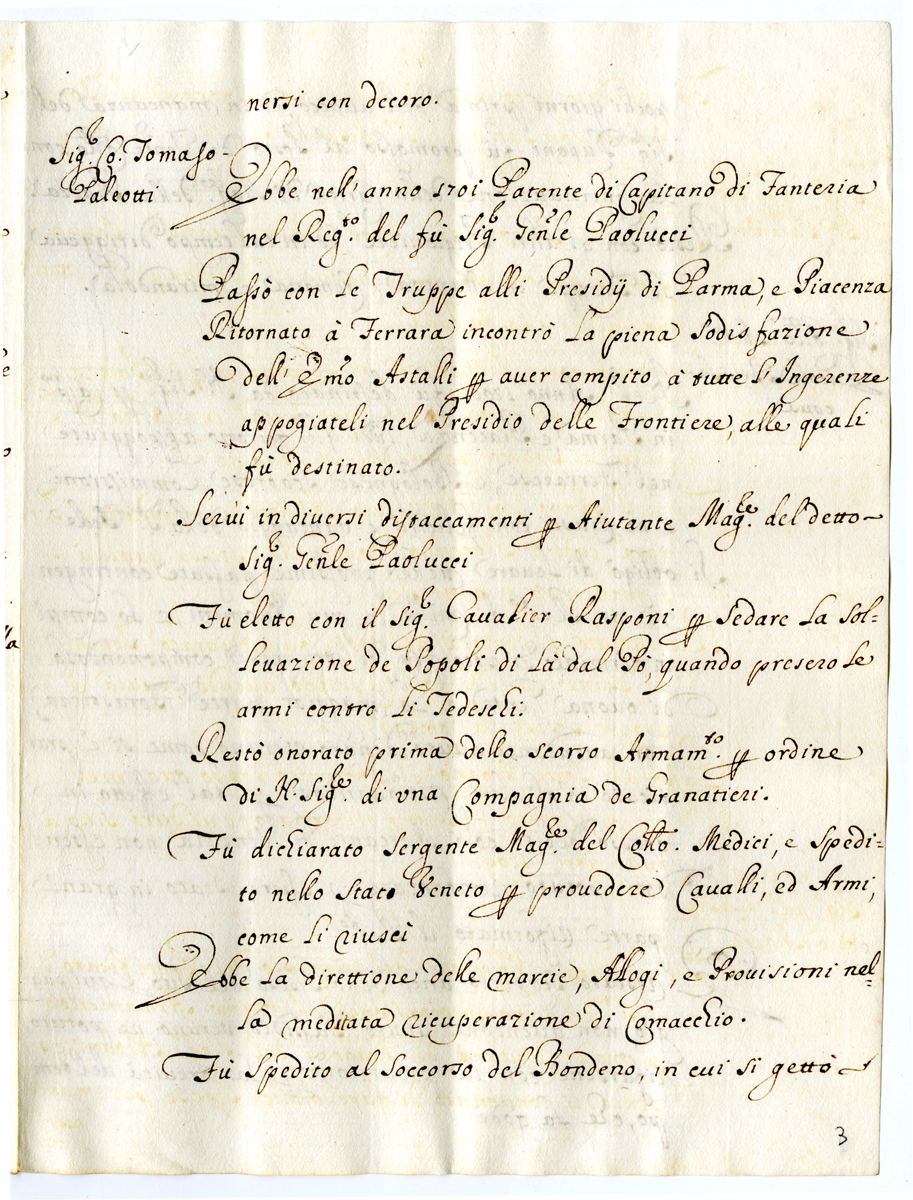 nersi con decoro.
Sig.r Co. Tomaso
Paleotti
Ebbe nell' anno 1701 Patente di Capitano di Fanteria
nel Reg.to del fù Sig.r Gen̄le Paolucci
Passò con le Truppe alli Presidij di Parma, e Piacenza
Ritornato à Ferrara incontrò la piena sodisfazione
dell' Em̄o Astalli p aver compito à tutte l' Ingerenze
appogiateli nel Presidio delle Frontiere, alle quali
fù destinato.
Servi in diversi distaccamenti p Aiutante Mag.re del detto
Sig.r Gen̄le Paolucci
Fù eletto con il Sig.r Cavalier Rasponi p sedare la sol=
levazione de Popoli di là dal Pò, quando presero le
armi contro li Tedeschi.
Restò onorato prima dello scorso Armam.to p ordine
di N. Sig.re di una Compagnia de Granatieri.
Fù dichiarato Sergente Mag.re del Co̅llo. Medici, e spedi=
to nello Stato Veneto p provedere Cavalli, ed Armi,
come li riuscì
Ebbe la direttione delle marcie, Allogi, e Provisioni nel=
la meditata ricuperazione di Comacchio.
Fù spedito al soccorso del Bondeno, in cui si gettò
3